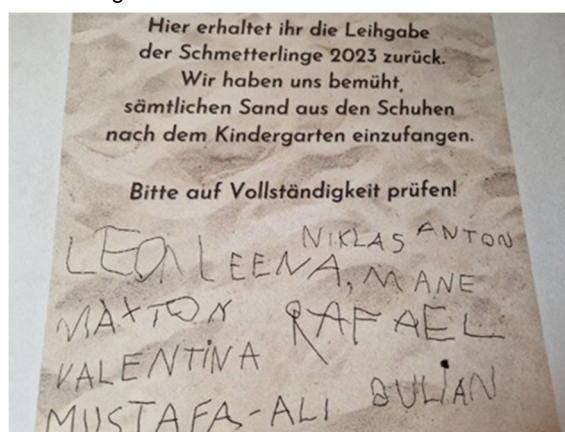 Hier erhaltet ihr die Leihgabe
der Schmetterlinge 2023 zurück.
Wir haben uns bemüht,
sämtlichen Sand aus den Schuhen
nach dem Kindergarten einzufangen.
Bitte auf Vollständigkeit prüfen!
NIKLAS ANTON
LEON LEENA, MANE
MAXTON RAFAEL
VALENTINA
MUSTAFA-ALI